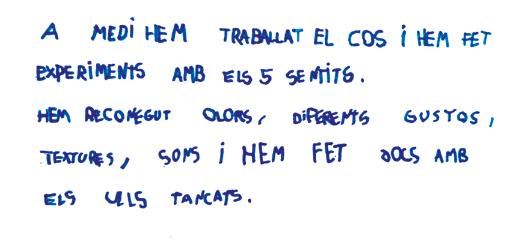 A MEDI HEM TRABALLAT EL COS I HEM FET
EXPERIMENTS AMB ELS 5 SENTITS.
HEM RECONEGUT OLORS, DIFERENTS GUSTOS,
TEXTURES, SONS I HEM FET JOCS AMB
ELS ULLS TANCATS.